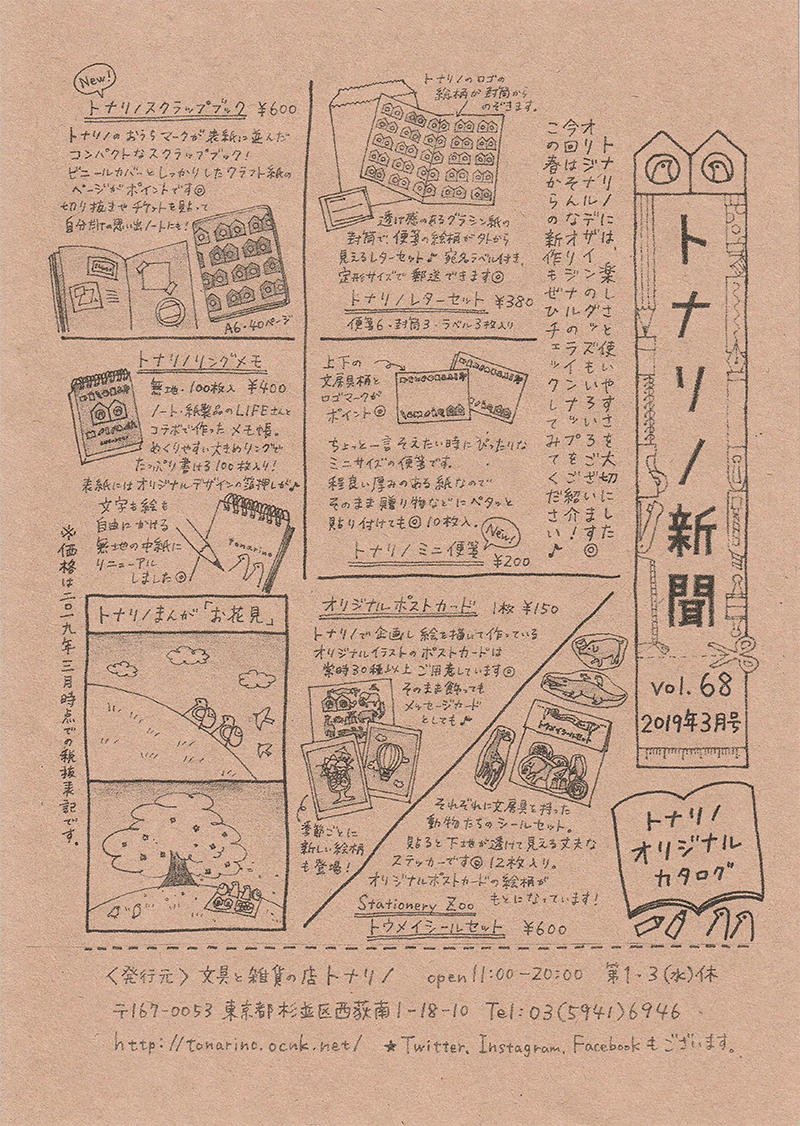 トナリノ新聞
vol.68
2019年3月号
トナリノ
オリジナル
カタログ
トナリノには、楽しさと使いやすさを大切にした
オリジナルデザインのグッズもいろいろございます◎
今回はそんなオリジナルのラインナップをご紹介！
この春からの新作もぜひチェックしてみてください♪
トナリノのロゴの
絵柄が封筒から
のぞきます。
透け感のあるグラシン紙の
封筒で、便箋の絵柄が外から
見えるレターセット♪ 宛名ラベル付き、
定形サイズで郵送できます◎
トナリノレターセット ¥380
便箋6・封筒3・ラベル3枚入り
New!
トナリノスクラップブック ¥600
トナリノのおうちマークが表紙に並んだ
コンパクトなスクラップブック！
ビニールカバーとしっかりしたクラフト紙の
ページがポイントです◎
切り抜きやチケットを貼って
自分だけの思い出ノートにも！
A6・40ページ
上下の
文房具柄と
ロゴマークが
ポイント◎
ちょっと一言そえたい時にぴったりな
ミニサイズの便箋です。
程良い厚みのある紙なので
そのまま贈り物などにペタッと
貼り付けても◎ 10枚入。
New!
トナリノミニ便箋 ¥200
トナリノリングメモ
無地・100枚入 ¥400
ノート・紙製品のLIFEさんと
コラボで作ったメモ帳。
めくりやすい大きめリングと
たっぷり書ける100枚入り！
表紙にはオリジナルデザインの箔押しが♪
文字も絵も
自由にかける
無地の中紙に
リニューアル
しました◎
tonarino
オリジナルポストカード 1枚¥150
トナリノで企画し絵を描いて作っている
オリジナルイラストのポストカードは
常時30種以上ご用意しています◎
そのまま飾っても
メッセージカード
としても♪
季節ごとに
新しい絵柄
も登場！
トウメイシールセット
それぞれに文房具を持った
動物たちのシールセット。
貼ると下地が透けて見える丈夫な
ステッカーです◎ 12枚入り。
オリジナルポストカードの絵柄が
もとになっています！
Stationery Zoo
トウメイシールセット ¥600
トナリノまんが「お花見」
※価格は二〇一九年三月時点での税抜表記です。
〈発行元〉文具と雑貨の店トナリノ open11:00-20:00 第1・3(水)休
〒167-0053 東京都杉並区西荻南1-18-10 Tel:03(5941)6946
http://tonarino.ocnk.net/ ★Twitter、Instagram、Facebookもございます。